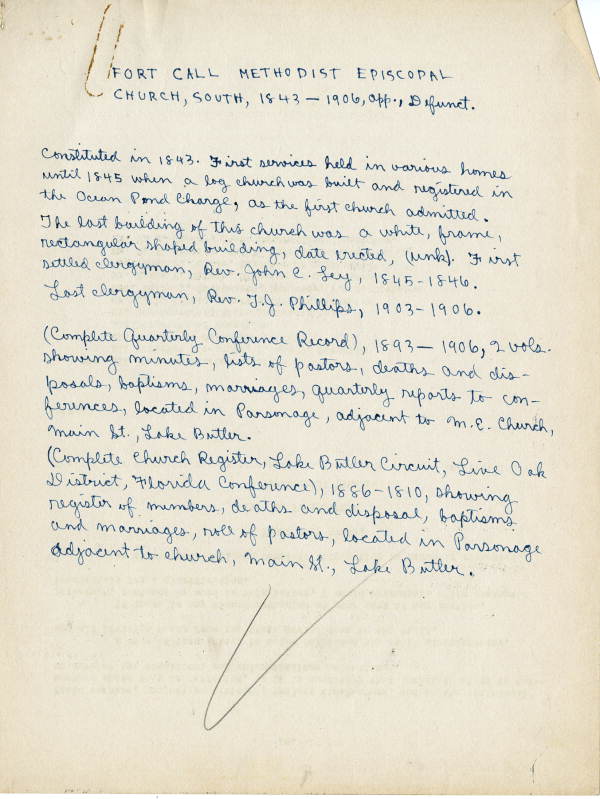 FORT CALL METHODIST EPISCOPAL
CHURCH, SOUTH, 1843 — 1906, app., Defunct.
Constituted in 1843. First services held in various homes
until 1845 when a log church was built and registered in
the Ocean Pond Charge, as the first church admitted.
The last building of this church was a white, frame,
rectangular shaped building, date erected, (unk). First
settled clergyman, Rev. John C. Ley, 1845-1846.
Last clergyman, Rev. T.J. Phillips, 1903-1906.
(Complete Quarterly Conference Record), 1893 — 1906, 2 vols.
showing minutes, lists of pastors, deaths and dis-
posals, baptisms, marriages, quarterly reports to con-
ferences, located in Parsonage, adjacent to M.E. Church,
Main St., Lake Butler.
(Complete Church Register, Lake Butler Circuit, Live Oak
District, Florida Conference), 1886-1810, showing
register of members, deaths and disposal, baptisms
and marriages, roll of pastors, located in Parsonage
adjacent to church, Main St., Lake Butler.